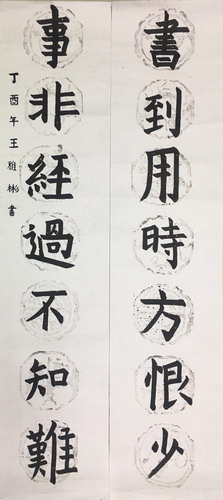 書到用時方恨少
事非經過不知難
丁酉年王雅彬書